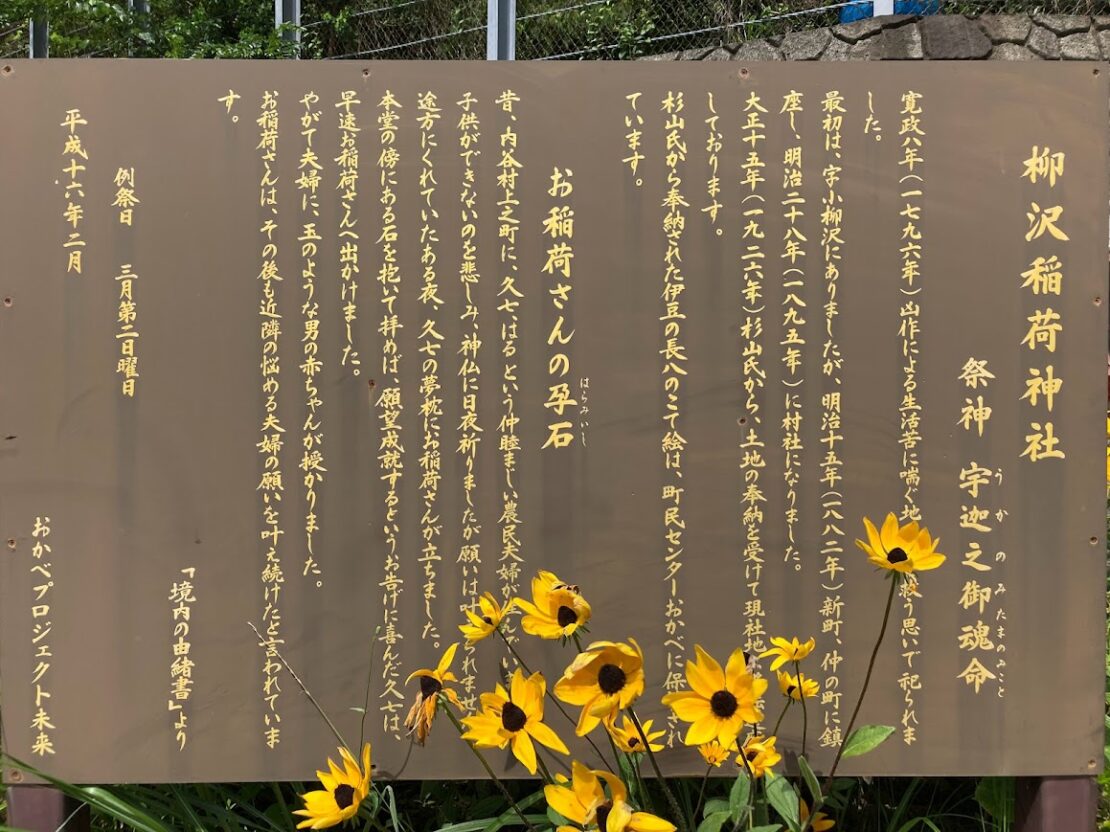 柳沢稲荷神社
祭神 宇迦之御魂命
うかのみたまのみこと
寛政八年(一七九六年)凶作による生活苦に喘ぐ地 救う思いで祀られま
した。
最初は、字小柳沢にありましたが、明治十五年(一八八二年)新町、仲の町に鎮
座し、明治二十八年(一八九五年)に村社になりました。
大正十五年(一九二六年)杉山氏から、土地の奉納を受けて現社地
しております。
杉山氏から奉納された伊豆の長八のこて絵は、町民センターおかべに保 され
ています。
お稲荷さんの孕石
はらみいし
昔、内谷村上之町に、久七、はるという仲睦ましい農民夫婦が
子供ができないのを悲しみ、神仏に日夜祈りましたが願いは れませ
途方にくれていたある夜、久七の夢枕にお稲荷さんが立ちました。
本堂の傍にある石を抱いて拝めば、願望成就するという、お告げに喜んだ久七は、
早速お稲荷さんへ出かけました。
やがて夫婦に、玉のような男の赤ちゃんが授かりました。
お稲荷さんは、その後も近隣の悩める夫婦の願いを叶え続けたと言われていま
す。
「境内の由緒書」より
例祭日 三月第二日曜日
平成十六年二月
おかべプロジェクト未来